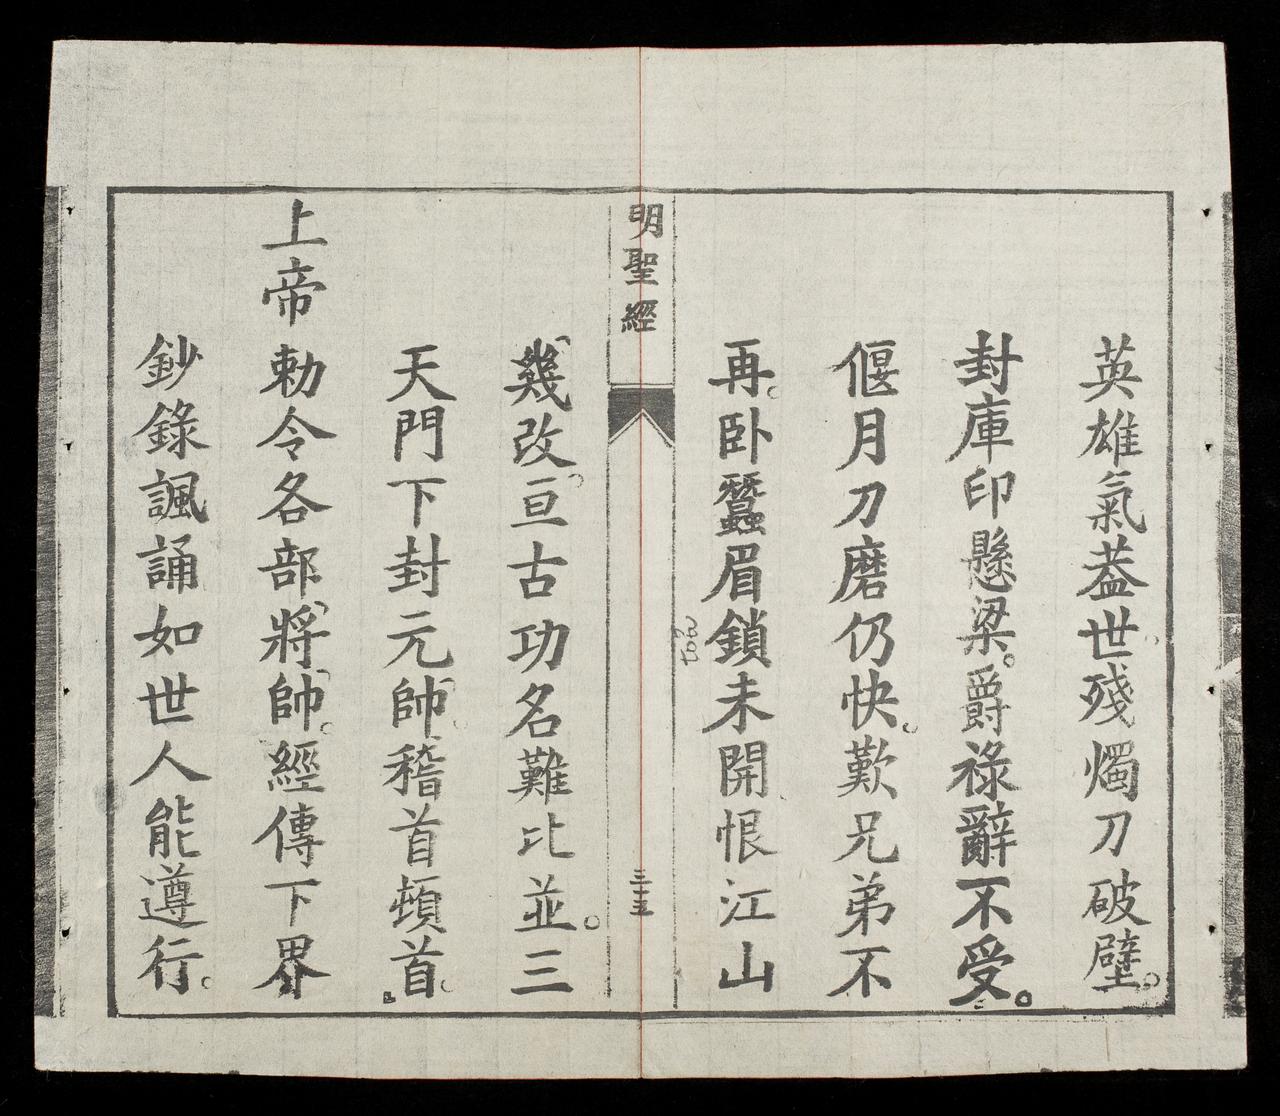 英雄氣蓋世殘燭刀破壁。
封庫印懸梁。爵祿辭不受。
偃月刀磨仍快。歎兄弟不
再。卧蠶眉鎖未開恨江山
明聖經
三十五
幾改。亘古功名難比並。三
天門下封元帥。稽首頓首。
上帝勅令各部將帥。經傳下界
鈔錄諷誦如世人能遵行。